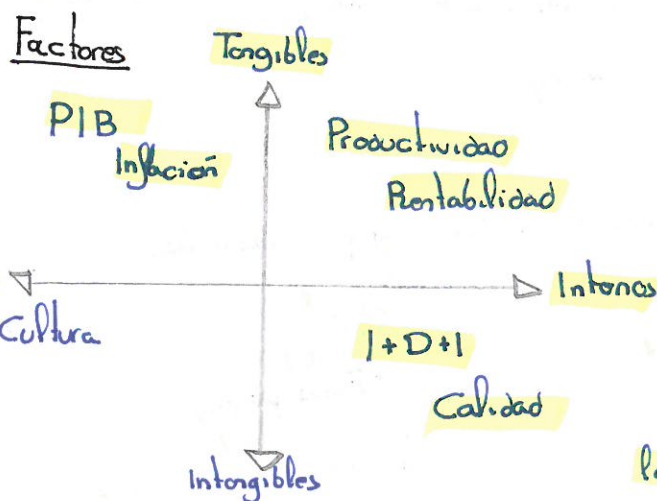 Factores
Tangibles
PIB
Inflación
Productividad
Rentabilidad
Internos
Cultura
I+D+I
Calidad
Intangibles